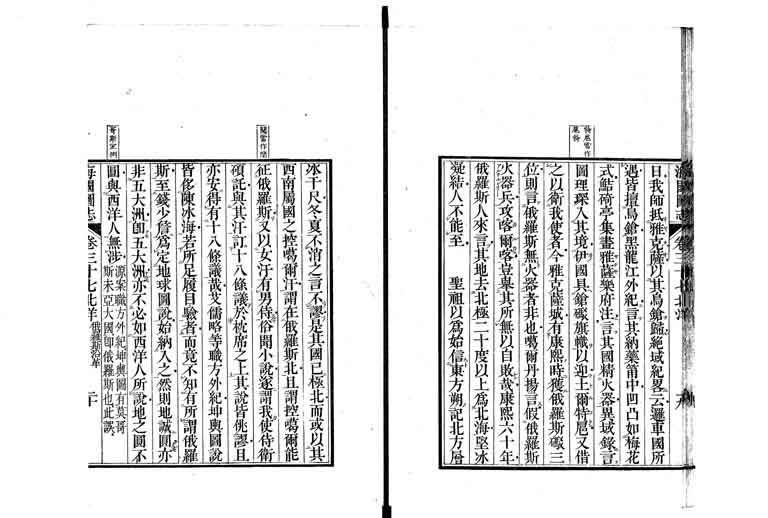 日我師抵雅克薩以其鳥鎗歸絶域紀畧云邏車國所
遇皆擅鳥鎗黑龍江外紀言其納藥莆中凹凸如梅花
式鮚碕亭集盡雅薩樂府注言其國精火器異域錄言
圖理琛入其境伊國具鎗礮旗幟以迎土爾特扈又借
之以衛我使者今雅克薩城有康熙時獲俄羅斯礮三
位則言俄羅斯無火器者非也噶爾丹揚言假俄羅斯
火器兵攻喀爾喀豈舉其所無以自敗哉康熙六十年
俄羅斯人來言其地去北極二十度以上爲北海堅冰
凝結人不能至 聖祖以爲始信東方朔記北方層
冰千尺冬夏不消之言不謬是其國已極北而或以其
西南屬國之控噶爾汗謂在俄羅斯北且謂控噶爾能
征俄羅斯又以女汗有男侍俗聞小說遂謂我使侍衛
碩託與其汗訂十八條議於枕席之上其說皆佻謬且
亦安得有十八條議哉艾儒略等職方外紀坤輿圖說
皆侈陳冰海若所足履目驗者而竟不知有所謂俄羅
斯至錢少詹爲定地球圖說始納入之然則地誠圓亦
非五大洲卽五大洲亦不必如西洋人所說地之圓不
圓與西洋人無涉
源案職方外紀坤輿圖有莫哥
斯未亞大國卽俄羅斯也此誤
海國圖志 卷三十七北洋 俄羅斯沿革 二十